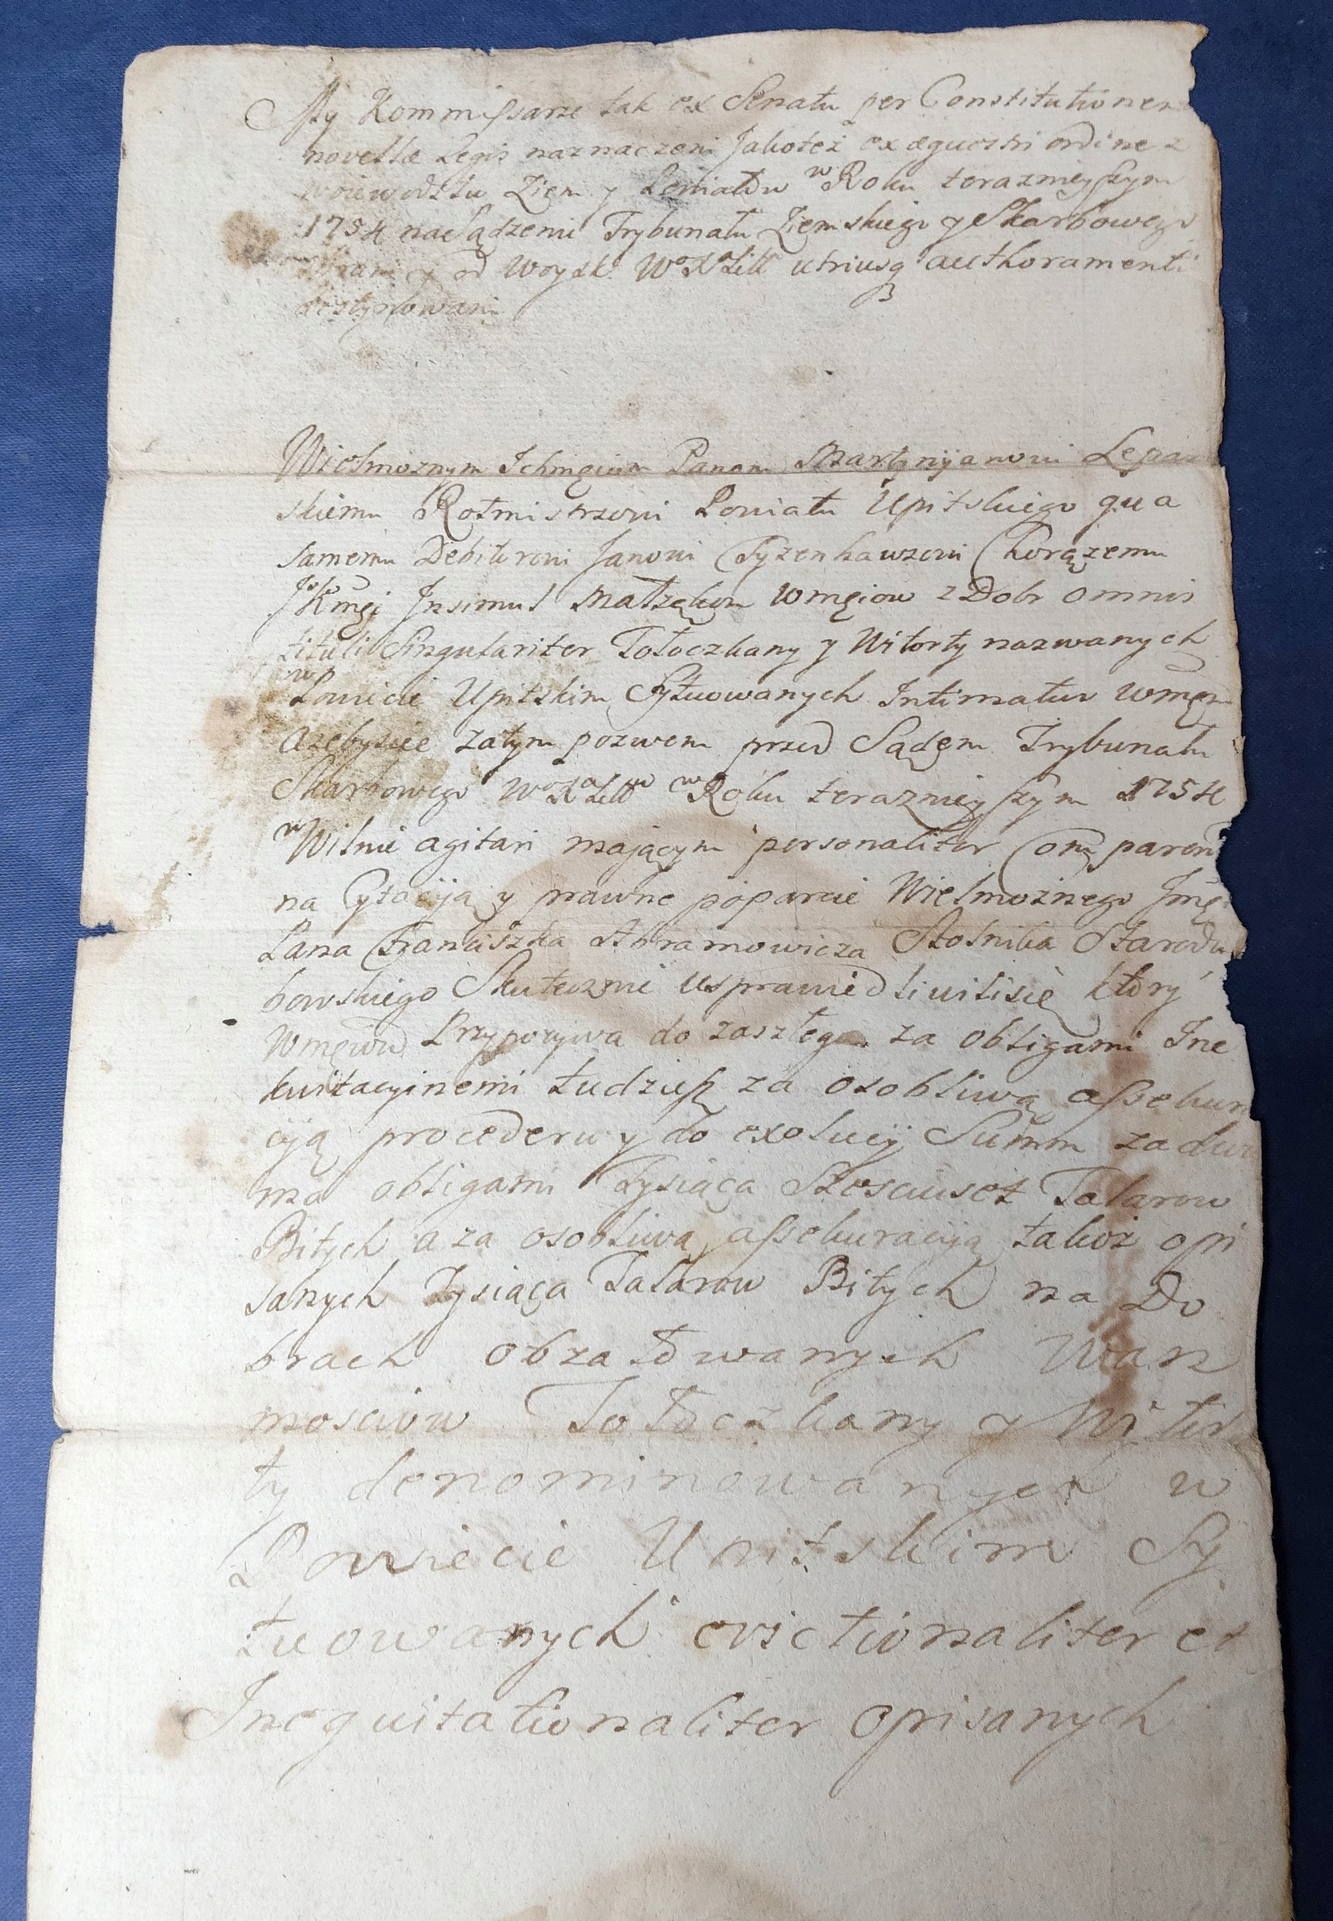 My Kommissarze tak ex Senatu per Constitutionem
novellæ Legis naznaczeni Jakoteż ex æquestri ordine z
woiewodztw Ziem y Powiatow w Roku teraznieyszym
1754 na Sądzenie Trybunału Ziemskiego y Skarbowego
y od Woysk WoXaLitt utriusq authoramenti
destynowani
Wielmożnym Ichmęciom Panom Martynijanowi
skiemu Rotmistrzowi Powiatu Upitskiego qua
samemu Debitorowi Janowi Tyzenhawzowi Chorążemu
JoKmęi Insimul Małżąkom Wmęiow z Dobr omnis
tituli Singulariter Tołoczkany y Witorty nazwanych
w Powiecie Upitskim Sytuowanych Intimatur Wmęm
Azebyscie zatym pozwem przed Sądem Trybunału
Skarbowego WoXaLitto w Roku terazniey szym 1754
w Wilnie agitari mającym personaliter Comparen
na Cytacyją y prawne poparcie Wielmożnego Jmę
Pana Franciszka Abramowicza Stolnika Starodu
bowskiego Skutecznie usprawiedliwilisie ktory
Wmęiow Przypozywa do zaszłego za obligami Ine
kwitacyinemi tudziesz za osobliwą assekura
cyją procederu y do exolucij Summ za dwu
ma obligami Tysiąca Szesciuset Talarow
Bitych a za osobliwą assekuracyją takoż opi
sanych Tysiąca Talarow Bitych na Do
brach obzałowanych Wasz
mosciow Tołoczkany y Witor
ty denominowanych w
Powiecie Upitskim Sy
tuowanych evictionaliter et
Inequitationaliter opisanych